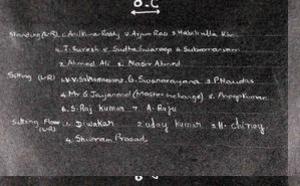 O.C
Standing (L-R) 1. Anil Kumar Reddy 2. Arjun Rao 3. Habibulla Khan
4. T. Suresh 5. Sudha Swaroop 6. Subramanyam
7. Ahmed Ali 8. Nasir Ahmed
Sitting (L-R) 1. V.V. 2. G. Suryanarayana 3. P. Haridas
4. Mr G. Jayanand (Master incharge) 5. Anoop Kumar
6. S. Raj Kumar 7. A. Raju
Sitting Floor (L-R) 1. Diwakar 2. Uday Kumar 3. H. Chinoy
4. Shivram Prasad